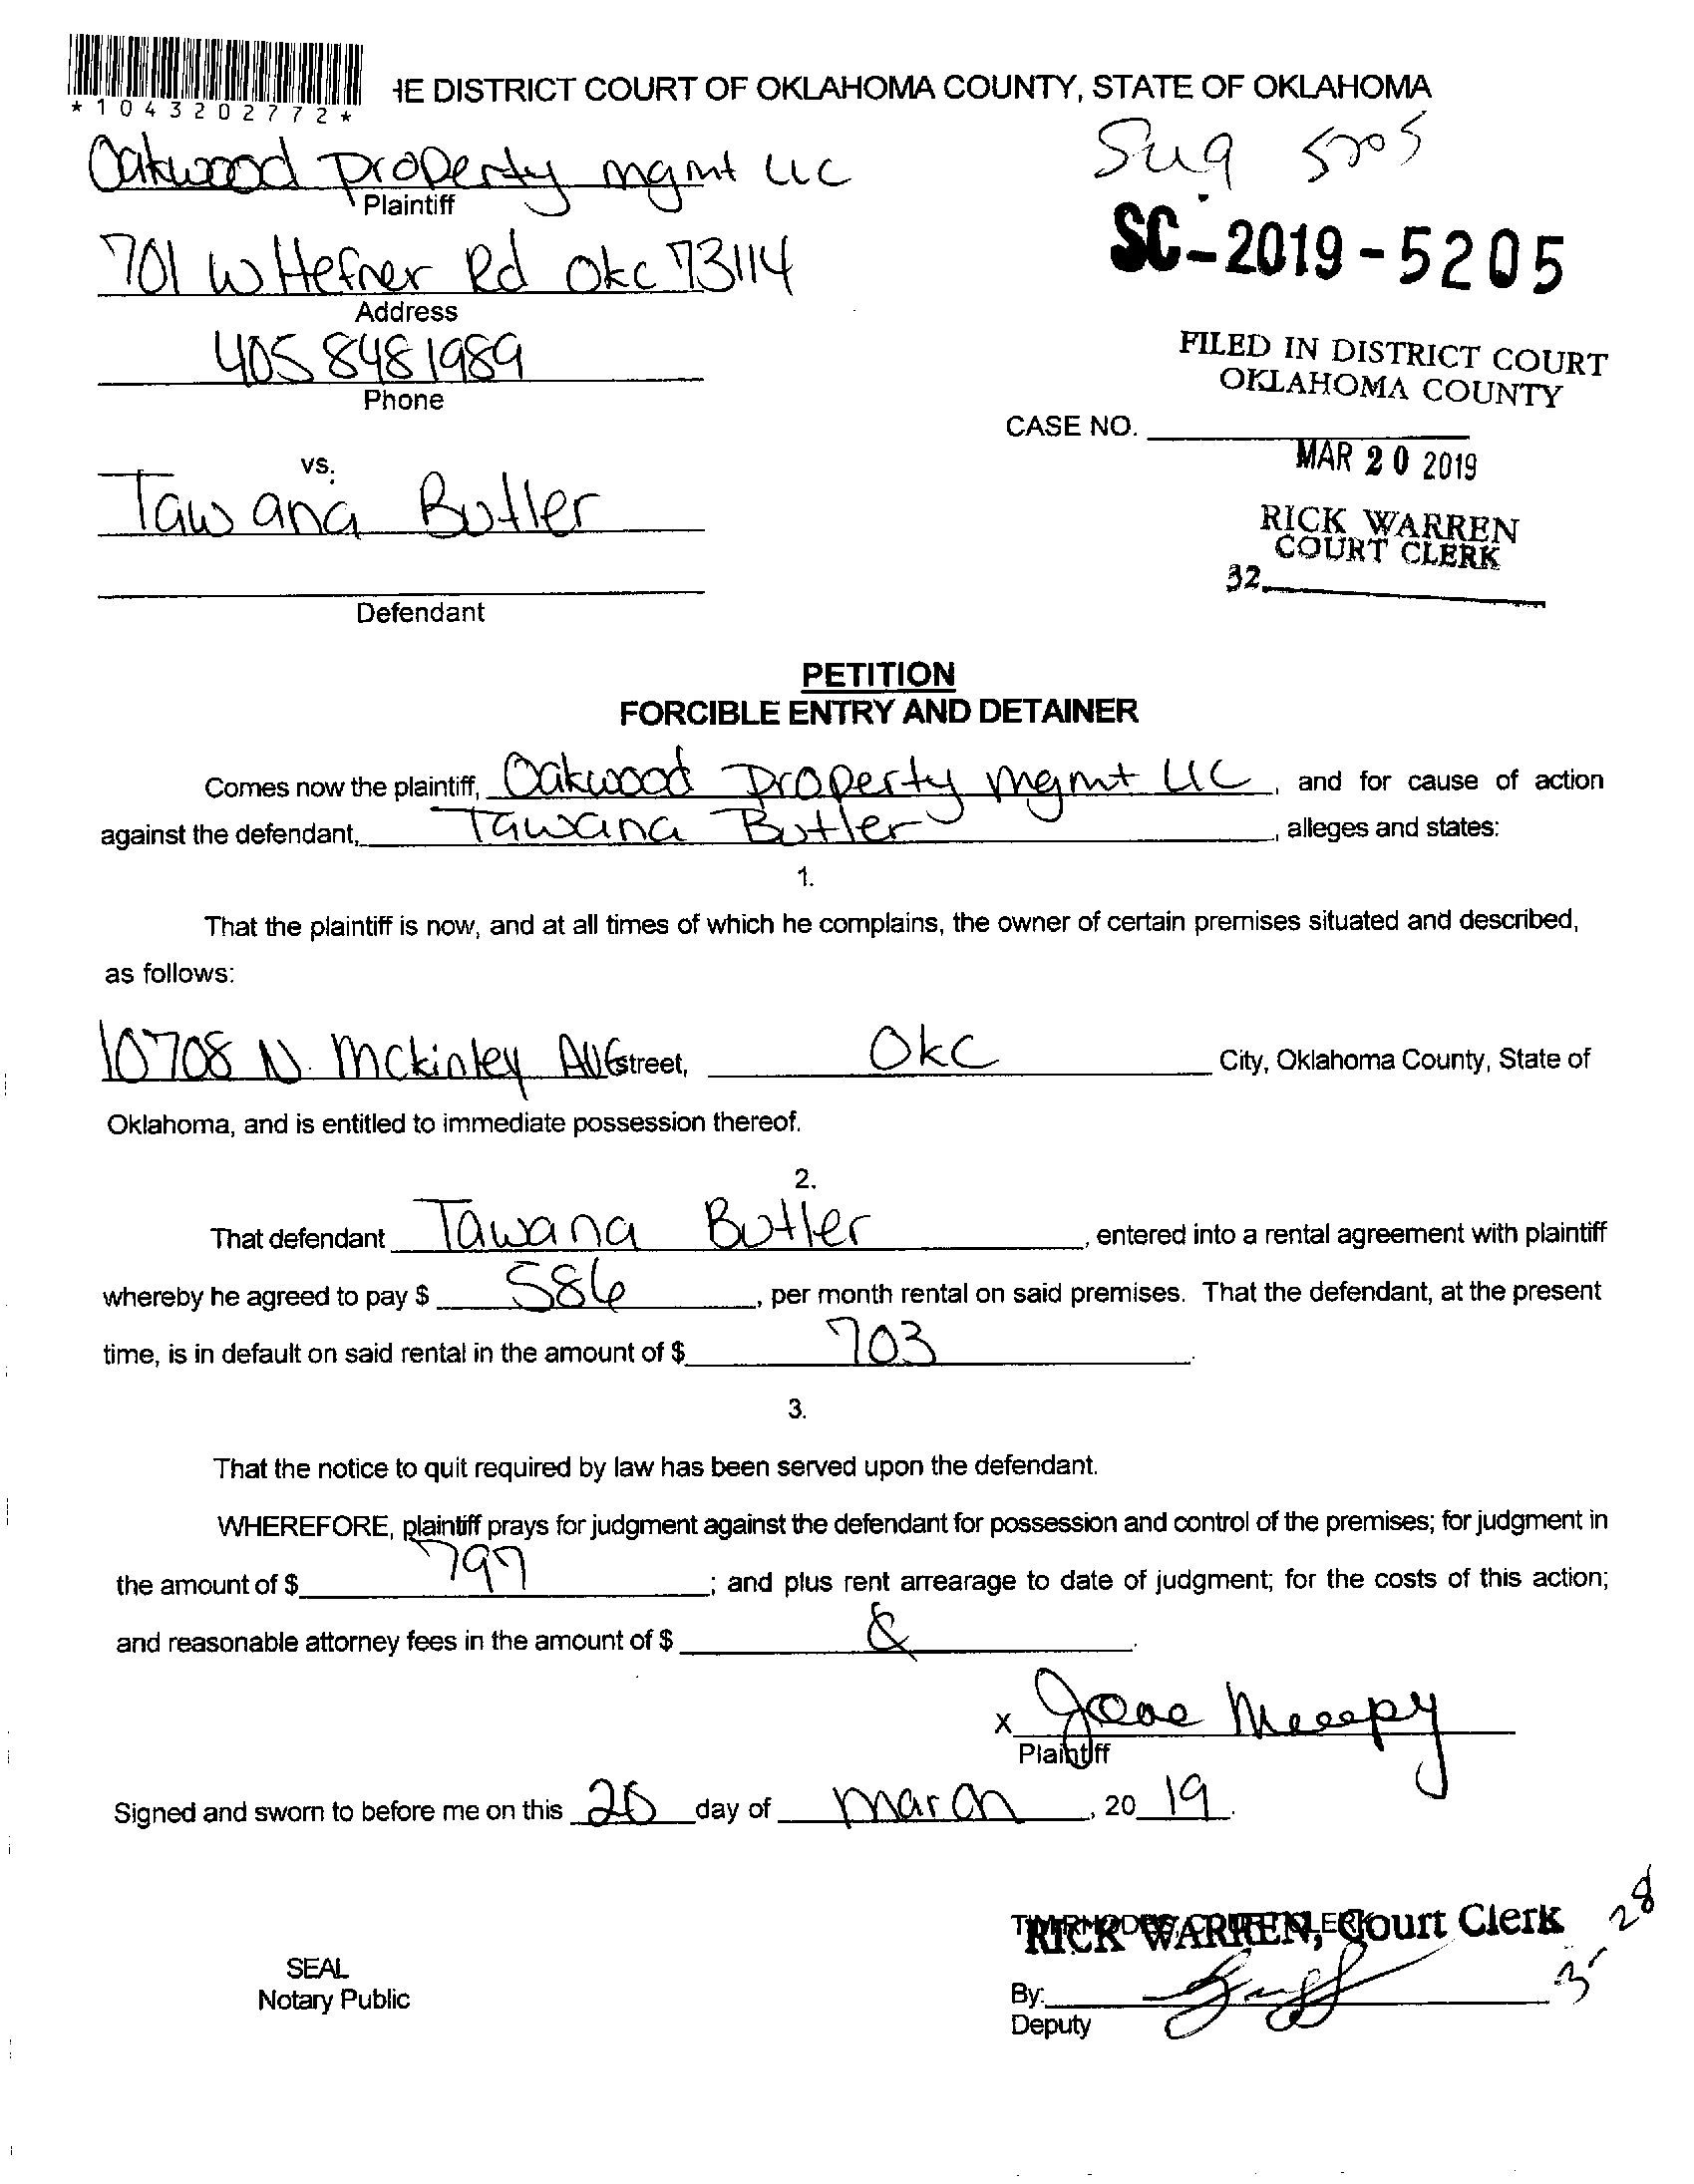 *1043202772*
HE DISTRICT COURT OF OKLAHOMA COUNTY, STATE OF OKLAHOMA
Oakwood Property mgmt LLC
Plaintiff
701 W Hefner Rd Okc 73114
Address
405 848 1989
Phone
vs.
Tawana Butler
Defendant
SC-2019-5205
FILED IN DISTRICT COURT
OKLAHOMA COUNTY
CASE NO.
MAR 20 2019
RICK WARREN
COURT CLERK
32
PETITION
FORCIBLE ENTRY AND DETAINER
Comes now the plaintiff, Oakwood Property mgmt LLC, and for cause of action
against the defendant, Tawana Butler, alleges and states:
1.
That the plaintiff is now, and at all times of which he complains, the owner of certain premises situated and described,
as follows:
10708 N. Mckinley Ave street, Okc City, Oklahoma County, State of
Oklahoma, and is entitled to immediate possession thereof.
2.
That defendant Tawana Butler, entered into a rental agreement with plaintiff
whereby he agreed to pay $ 586, per month rental on said premises. That the defendant, at the present
time, is in default on said rental in the amount of $ 703.
3.
That the notice to quit required by law has been served upon the defendant.
WHEREFORE, plaintiff prays for judgment against the defendant for possession and control of the premises; for judgment in
the amount of $ 797; and plus rent arrearage to date of judgment; for the costs of this action;
and reasonable attorney fees in the amount of $
x
Plaintiff
Signed and sworn to before me on this 20 day of march, 20 19.
RICK WARREN, Court Clerk
SEAL
Notary Public
By:
Deputy
3-28